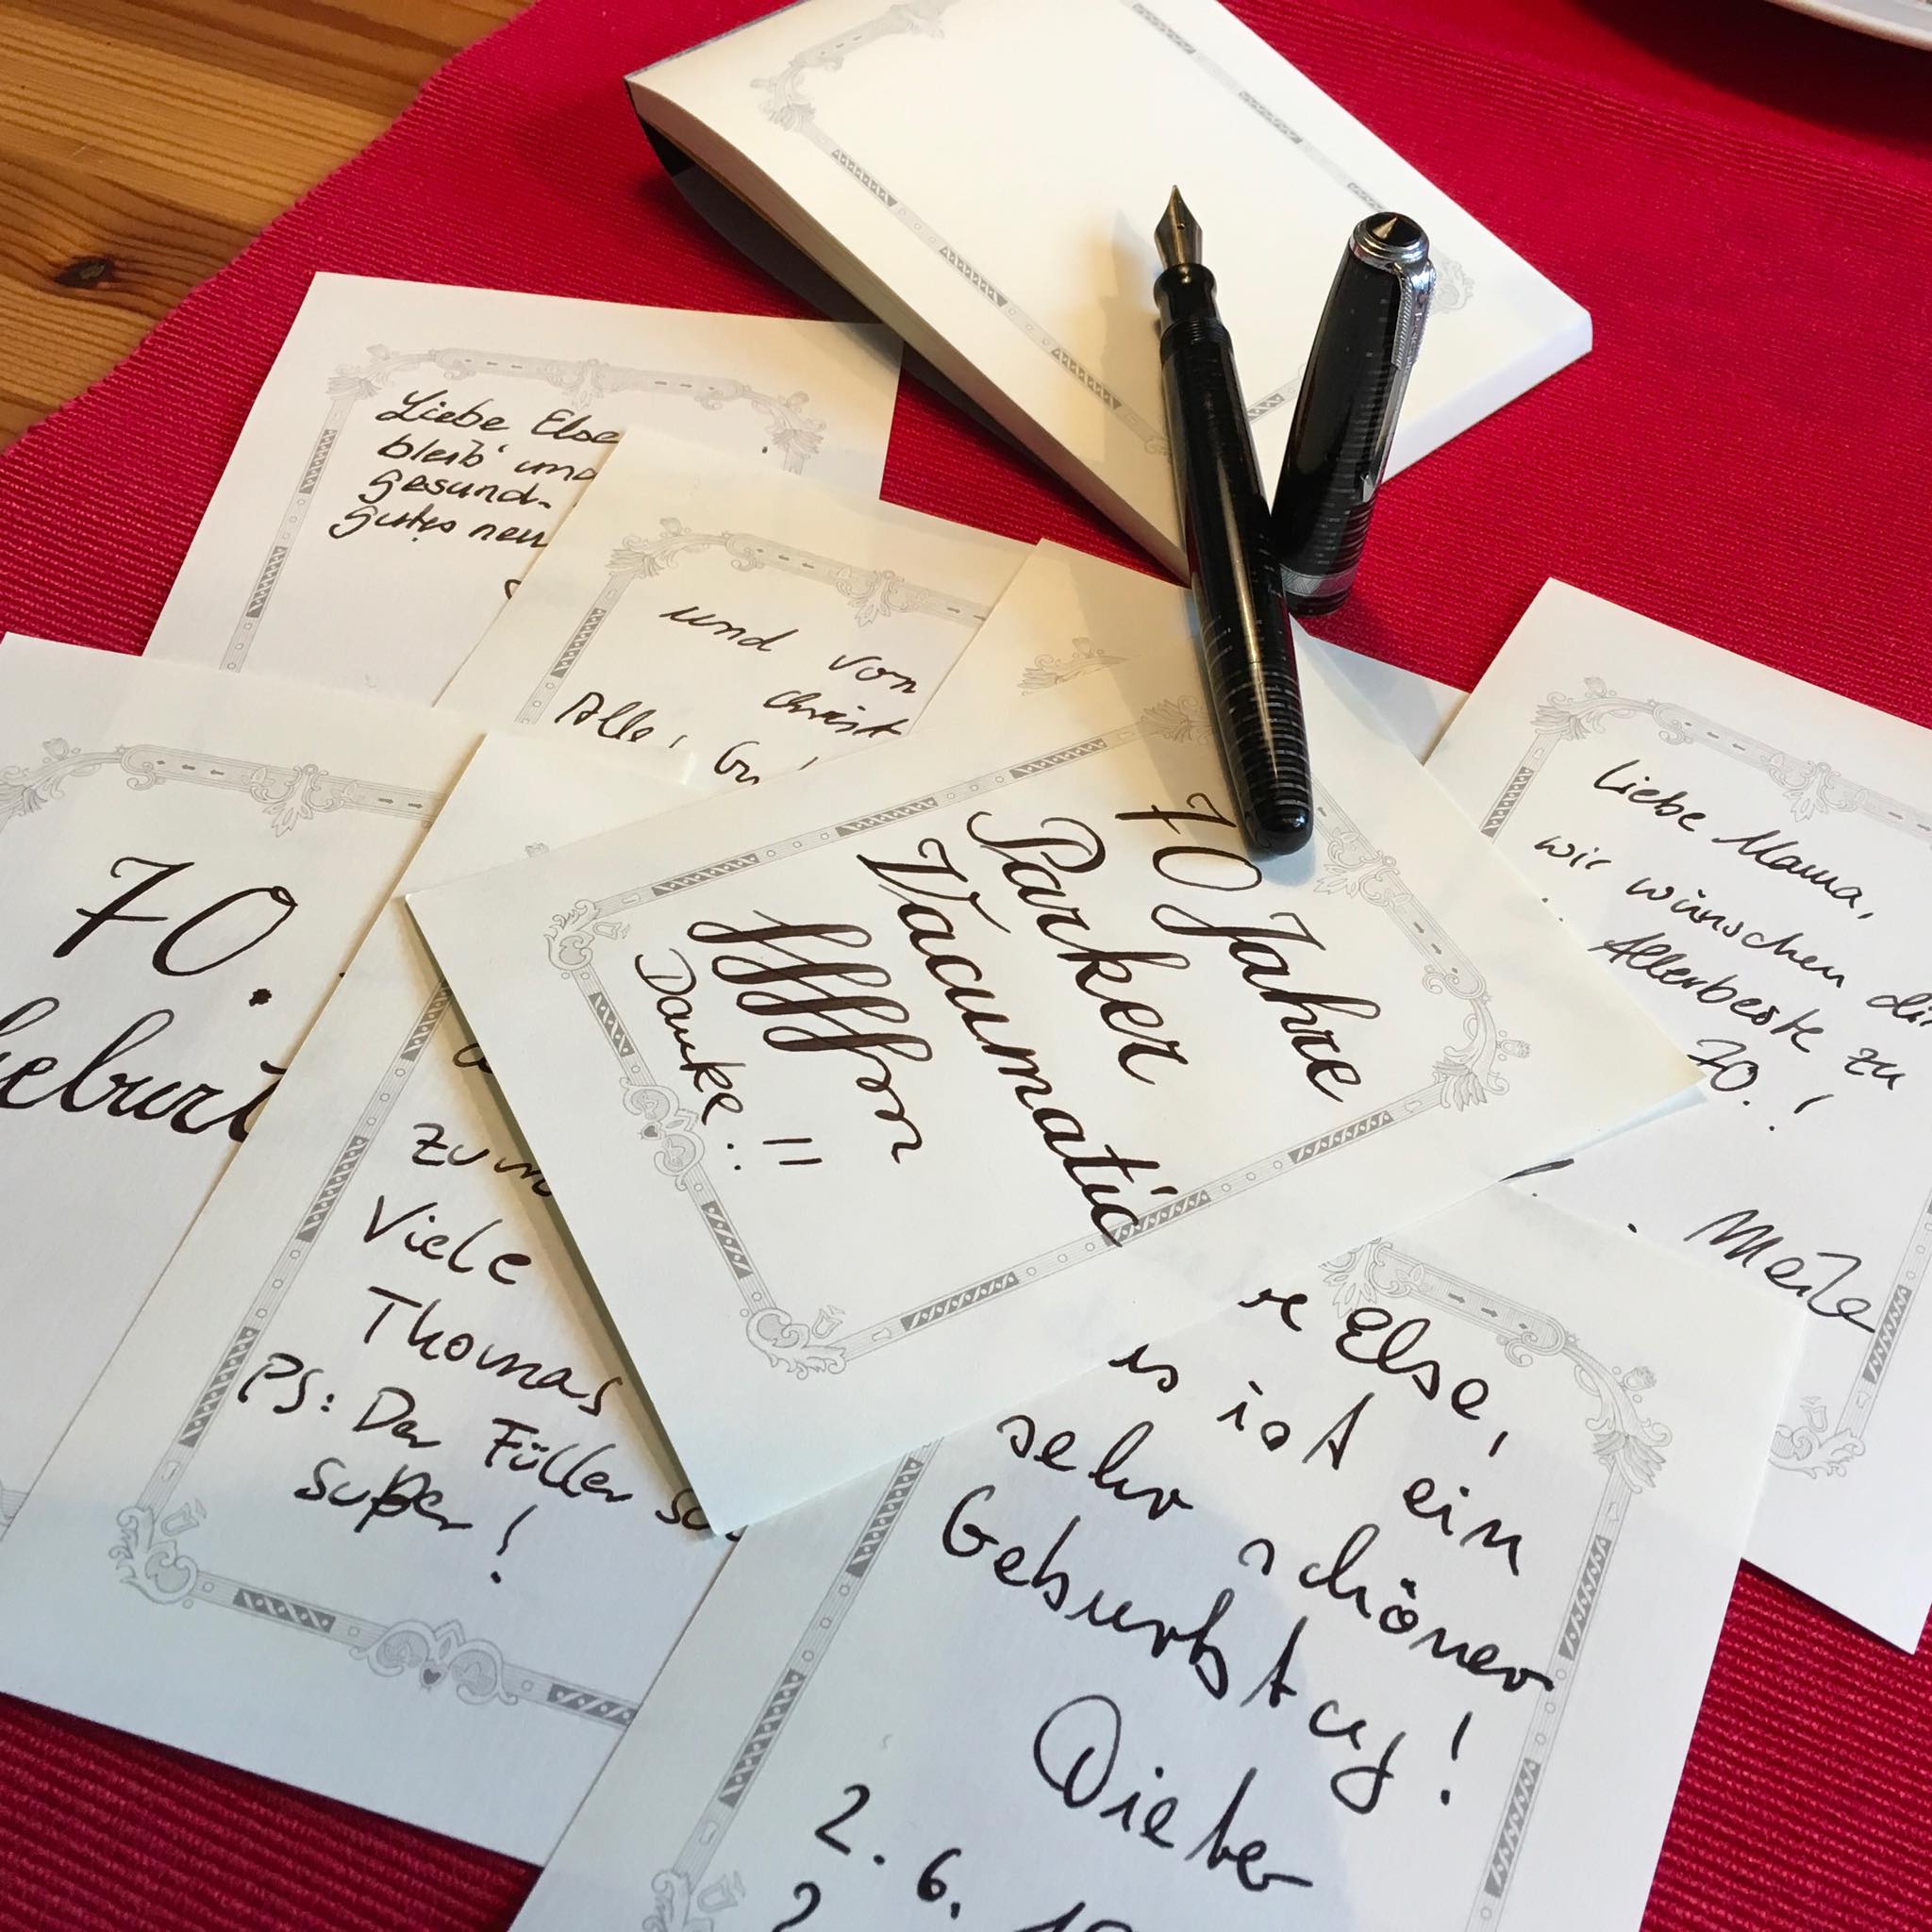 Liebe Else
bleib' und
gesund.
gutes neu
und von
Christ
Alles Gu
70.
Geburt
zum
Viele
Thomas
PS: Der Füller
super!
70 Jahre
Parker
Vacumatic
Danke!!
Liebe Mama,
wir wünschen dir
Allerbeste zu
70.!
Else,
es ist ein
sehr schöner
Geburtstag!
Dieter
2.6.